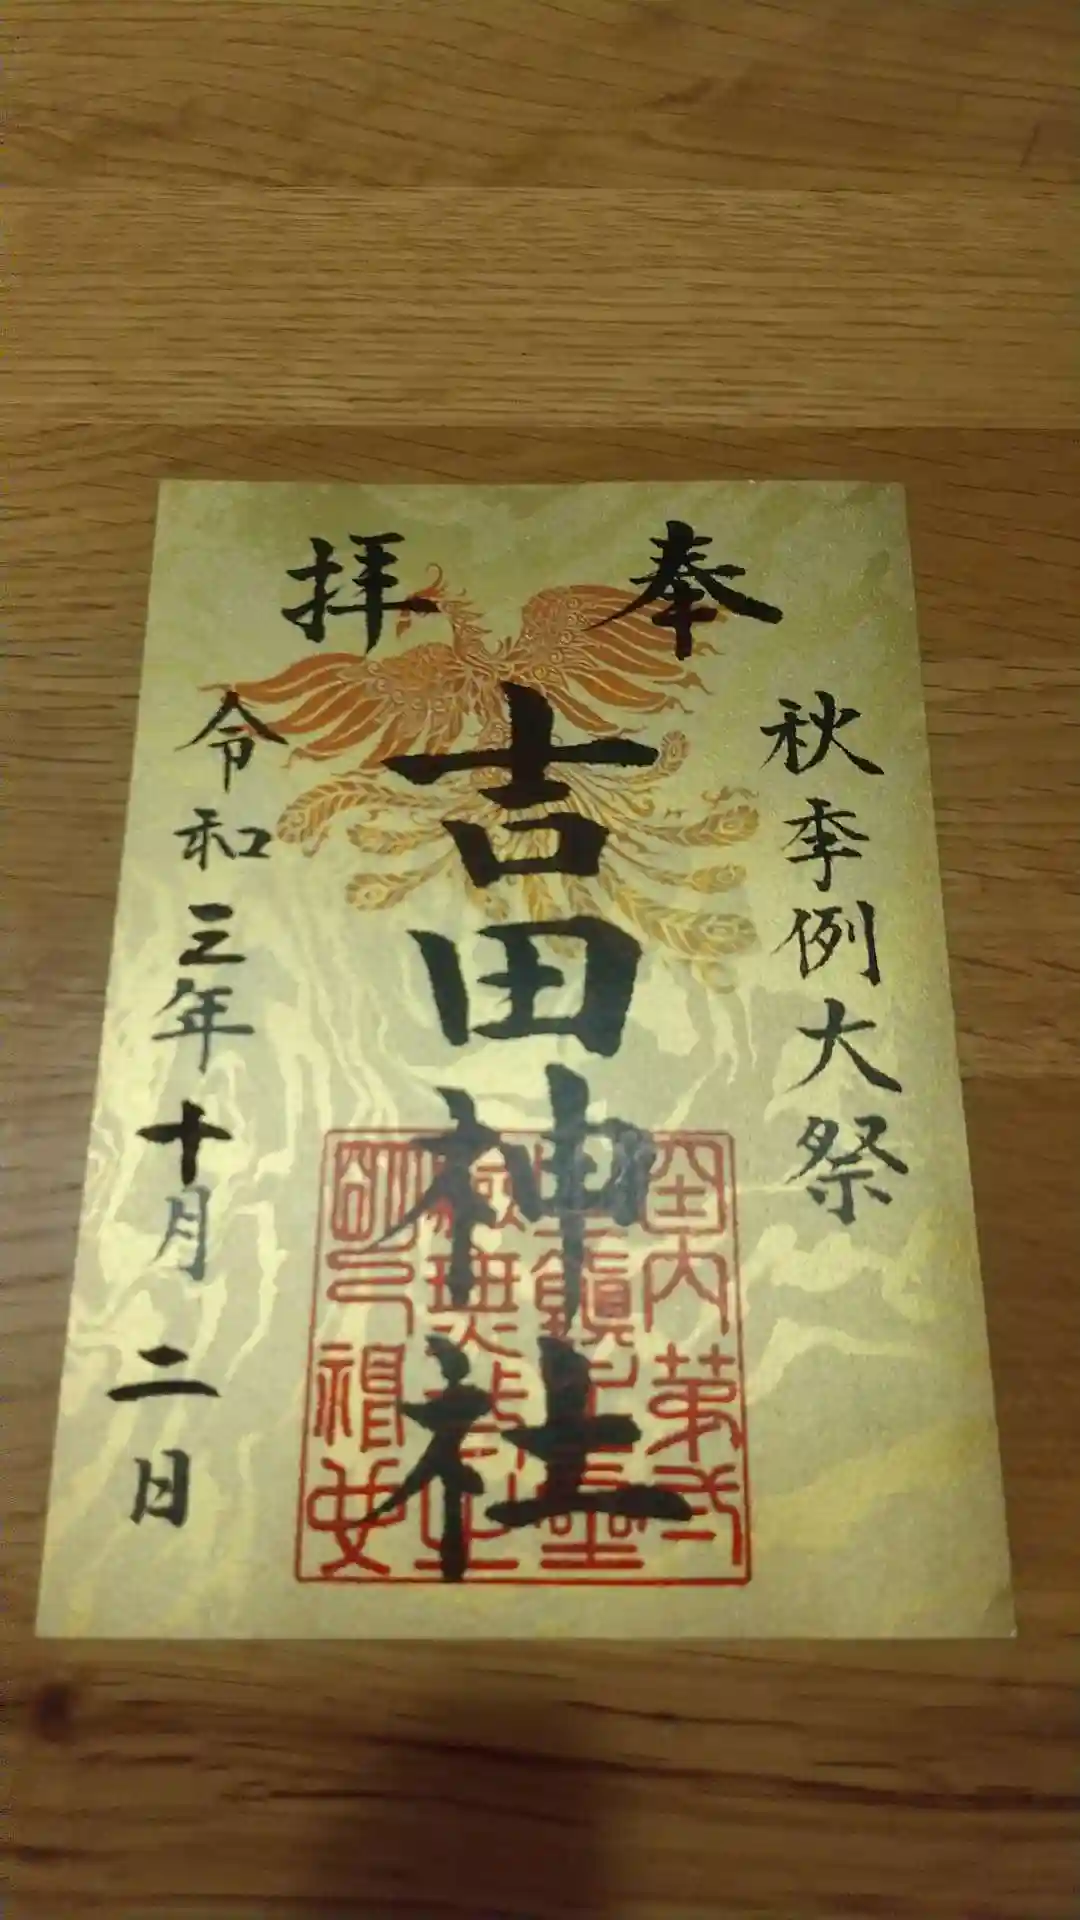 奉拝
秋季例大祭
吉田神社
令和三年十月二日